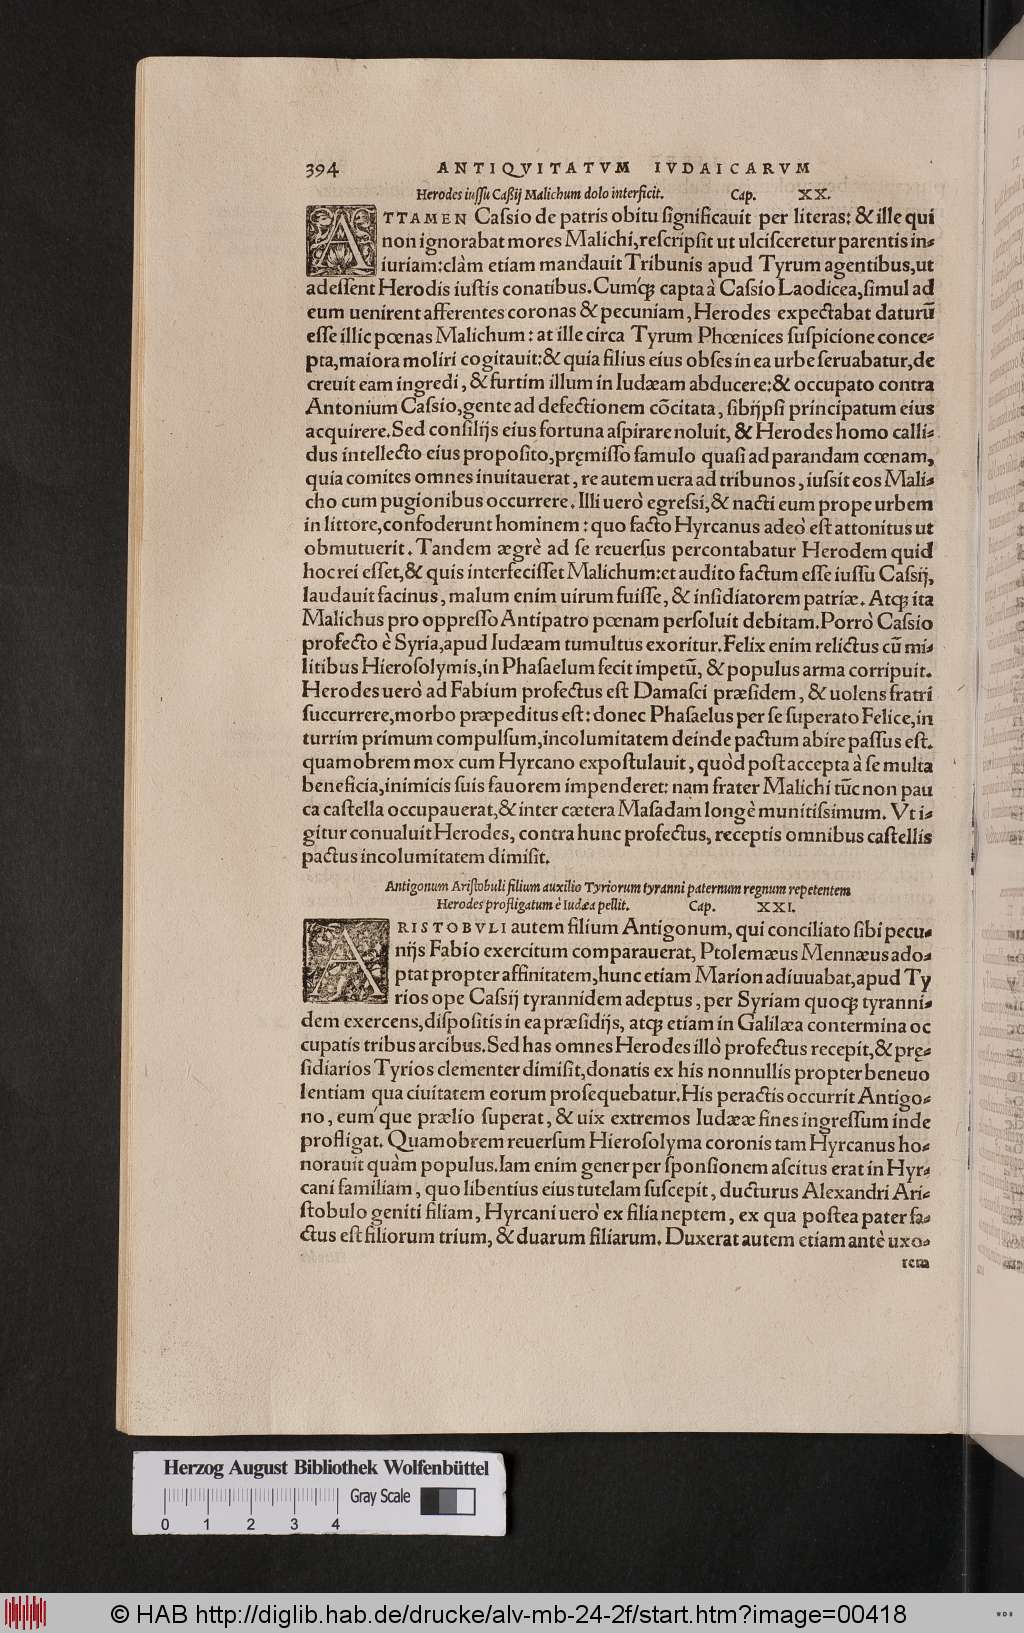 394 ANTIQVITATVM IVDAICARVM
Herodes iuſſu Caßij Malichum dolo interficit. Cap. XX.
ATTAMEN Caſsio de patris obitu ſignificauit per literas: & ille qui
non ignorabat mores Malichi, reſcripſit ut ulciſceretur parentis in⸗
iuriam: clàm etiam mandauit Tribunis apud Tyrum agentibus, ut
adeſſent Herodis iuſtis conatibus. Cumq́ꝫ capta à Caſsio Laodicea, ſimul ad
eum uenirent afferentes coronas & pecuniam, Herodes expectabat daturũ
eſſe illic pœnas Malichum: at ille circa Tyrum Phœnices ſuſpicione conce⸗
pta, maiora moliri cogitauit: & quia filius eius obſes in ea urbe ſeruabatur, de
creuit eam ingredi, & furtim illum in Iudæam abducere: & occupato contra
Antonium Caſsio, gente ad defectionem cõcitata, ſibijpſi principatum eius
acquirere. Sed conſilijs eius fortuna aſpirare noluit, & Herodes homo calli⸗
dus intellecto eius propoſito, pręmiſſo famulo quaſi ad parandam cœnam,
quia comites omnes inuitauerat, re autem uera ad tribunos, iuſsit eos Mali⸗
cho cum pugionibus occurrere. Illi uerò egreſsi, & nacti eum prope urbem
in littore, confoderunt hominem: quo facto Hyrcanus adeò eſt attonitus ut
obmutuerit. Tandem ægrè ad ſe reuerſus percontabatur Herodem quid
hoc rei eſſet, & quis interfeciſſet Malichum: et audito factum eſſe iuſſu Caſsij,
laudauit facinus, malum enim uirum fuiſſe, & inſidiatorem patriæ. Atqꝫ ita
Malichus pro oppreſſo Antipatro pœnam perſoluit debitam. Porrò Caſsio
profecto è Syria, apud Iudæam tumultus exoritur. Felix enim relictus cũ mi⸗
litibus Hieroſolymis, in Phaſaelum fecit impetũ, & populus arma corripuit.
Herodes uerò ad Fabium profectus eſt Damaſci præſidem, & uolens fratri
ſuccurrere, morbo præpeditus eſt: donec Phaſaelus per ſe ſuperato Felice, in
turrim primum compulſum, incolumitatem deinde pactum abire paſſus eſt.
quamobrem mox cum Hyrcano expoſtulauit, quòd poſt accepta à ſe multa
beneficia, inimicis ſuis fauorem impenderet: nam frater Malichi tũc non pau
ca caſtella occupauerat, & inter cætera Maſadam longè munitiſsimum. Vt i⸗
gitur conualuit Herodes, contra hunc profectus, receptis omnibus caſtellis
pactus incolumitatem dimiſit.
Antigonum Ariſtobuli filium auxilio Tyriorum tyranni paternum regnum repetentem
Herodes profligatum è Iudæa pellit. Cap. XXI.
ARISTOBVLI autem filium Antigonum, qui conciliato ſibi pecu⸗
nijs Fabio exercitum comparauerat, Ptolemæus Mennæus ado⸗
ptat propter affinitatem, hunc etiam Marion adiuuabat, apud Ty
rios ope Caſsij tyrannidem adeptus, per Syriam quoqꝫ tyranni⸗
dem exercens, diſpoſitis in ea præſidijs, atqꝫ etiam in Galilæa contermina oc
cupatis tribus arcibus. Sed has omnes Herodes illò profectus recepit, & prę⸗
ſidiarios Tyrios clementer dimiſit, donatis ex his nonnullis propter beneuo
lentiam qua ciuitatem eorum proſequebatur. His peractis occurrit Antigo⸗
no, euḿque prælio ſuperat, & uix extremos Iudææ fines ingreſſum inde
profligat. Quamobrem reuerſum Hieroſolyma coronis tam Hyrcanus ho⸗
norauit quàm populus. Iam enim gener per ſponſionem aſcitus erat in Hyr⸗
cani familiam, quo libentius eius tutelam ſuſcepit, ducturus Alexandri Ari⸗
ſtobulo geniti filiam, Hyrcani uerò ex filia neptem, ex qua poſtea pater fa⸗
ctus eſt filiorum trium, & duarum filiarum. Duxerat autem etiam antè uxo⸗
rem
Herzog August Bibliothek Wolfenbüttel
Gray Scale
0 1 2 3 4
© HAB http://diglib.hab.de/drucke/alv-mb-24-2f/start.htm?image=00418